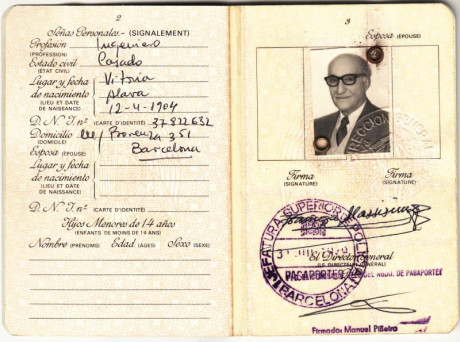 2
Señas Personales-(SIGNALEMENT)
Profesión Ingeniero
(PROFESSION)
Estado civil Casado
(ÉTAT CIVIL)
Lugar y fecha Vitoria
de nacimiento Alava
(LIEU ET DATE
DE NAISSANCE) 12-4-1904
D. N. I. nº (CARTE D'IDENTITÉ) 37822632
Domicilio Provenza 351
(DOMICILE)
Barcelona
Esposa (ÉPOUSE)
Lugar y fecha
de nacimiento
(LIEU ET DATE
DE NAISSANCE)
D. N. I. nº (CARTE D'IDENTITÉ)
Hijos Menores de 14 años
(ENFANTS DE MOINS DE 14 ANS)
Nombre (PRÉNOMS) Edad (AGES) Sexo (SEXE)
3
Esposa (ÉPOUSE)
DIRECCION GENERAL
Firma
(SIGNATURE)
Firma
(SIGNATURE)
JEFATURA SUPERIOR POLICIA
El Director General
(LE DIRECTEUR GÉNÉRAL)
PASAPORTES
DEL NGDO. DE PASAPORTES
BARCELONA
Firmado: Manuel Piñeiro